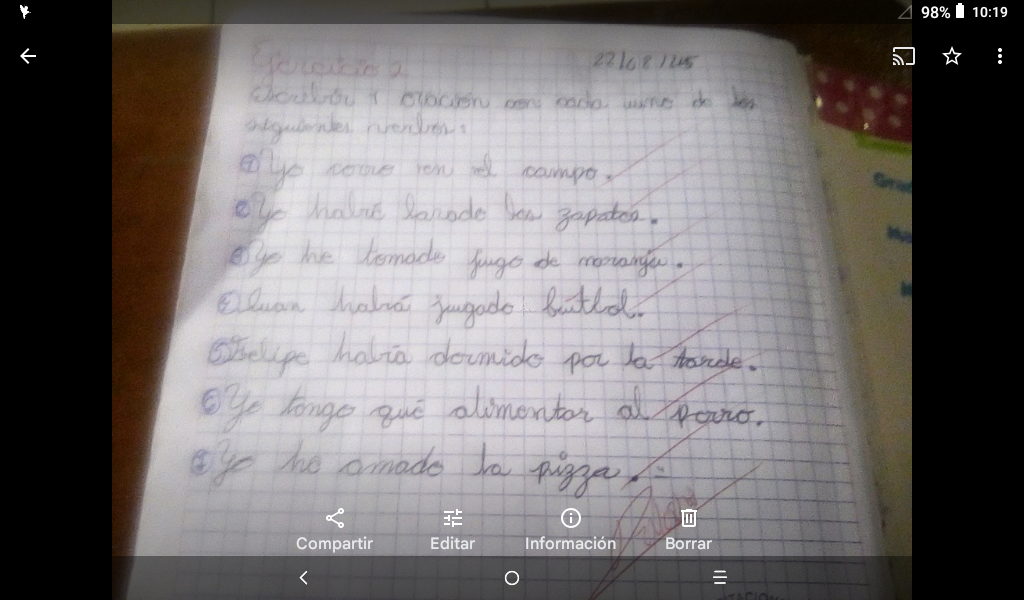 98% 10:19
Ejercicio 2
27/08/25
Escribir 1 oración con cada uno de los
siguientes verbos:
① Yo corro en el campo.
② Yo habré lavado los zapatos.
③ Yo he tomado jugo de naranja.
④ Juan habrá jugado futbol.
⑤ Felipe había dormido por la tarde.
⑥ Yo tengo qué alimentar al perro.
⑦ Yo he amado la pizza.
Compartir Editar Información Borrar